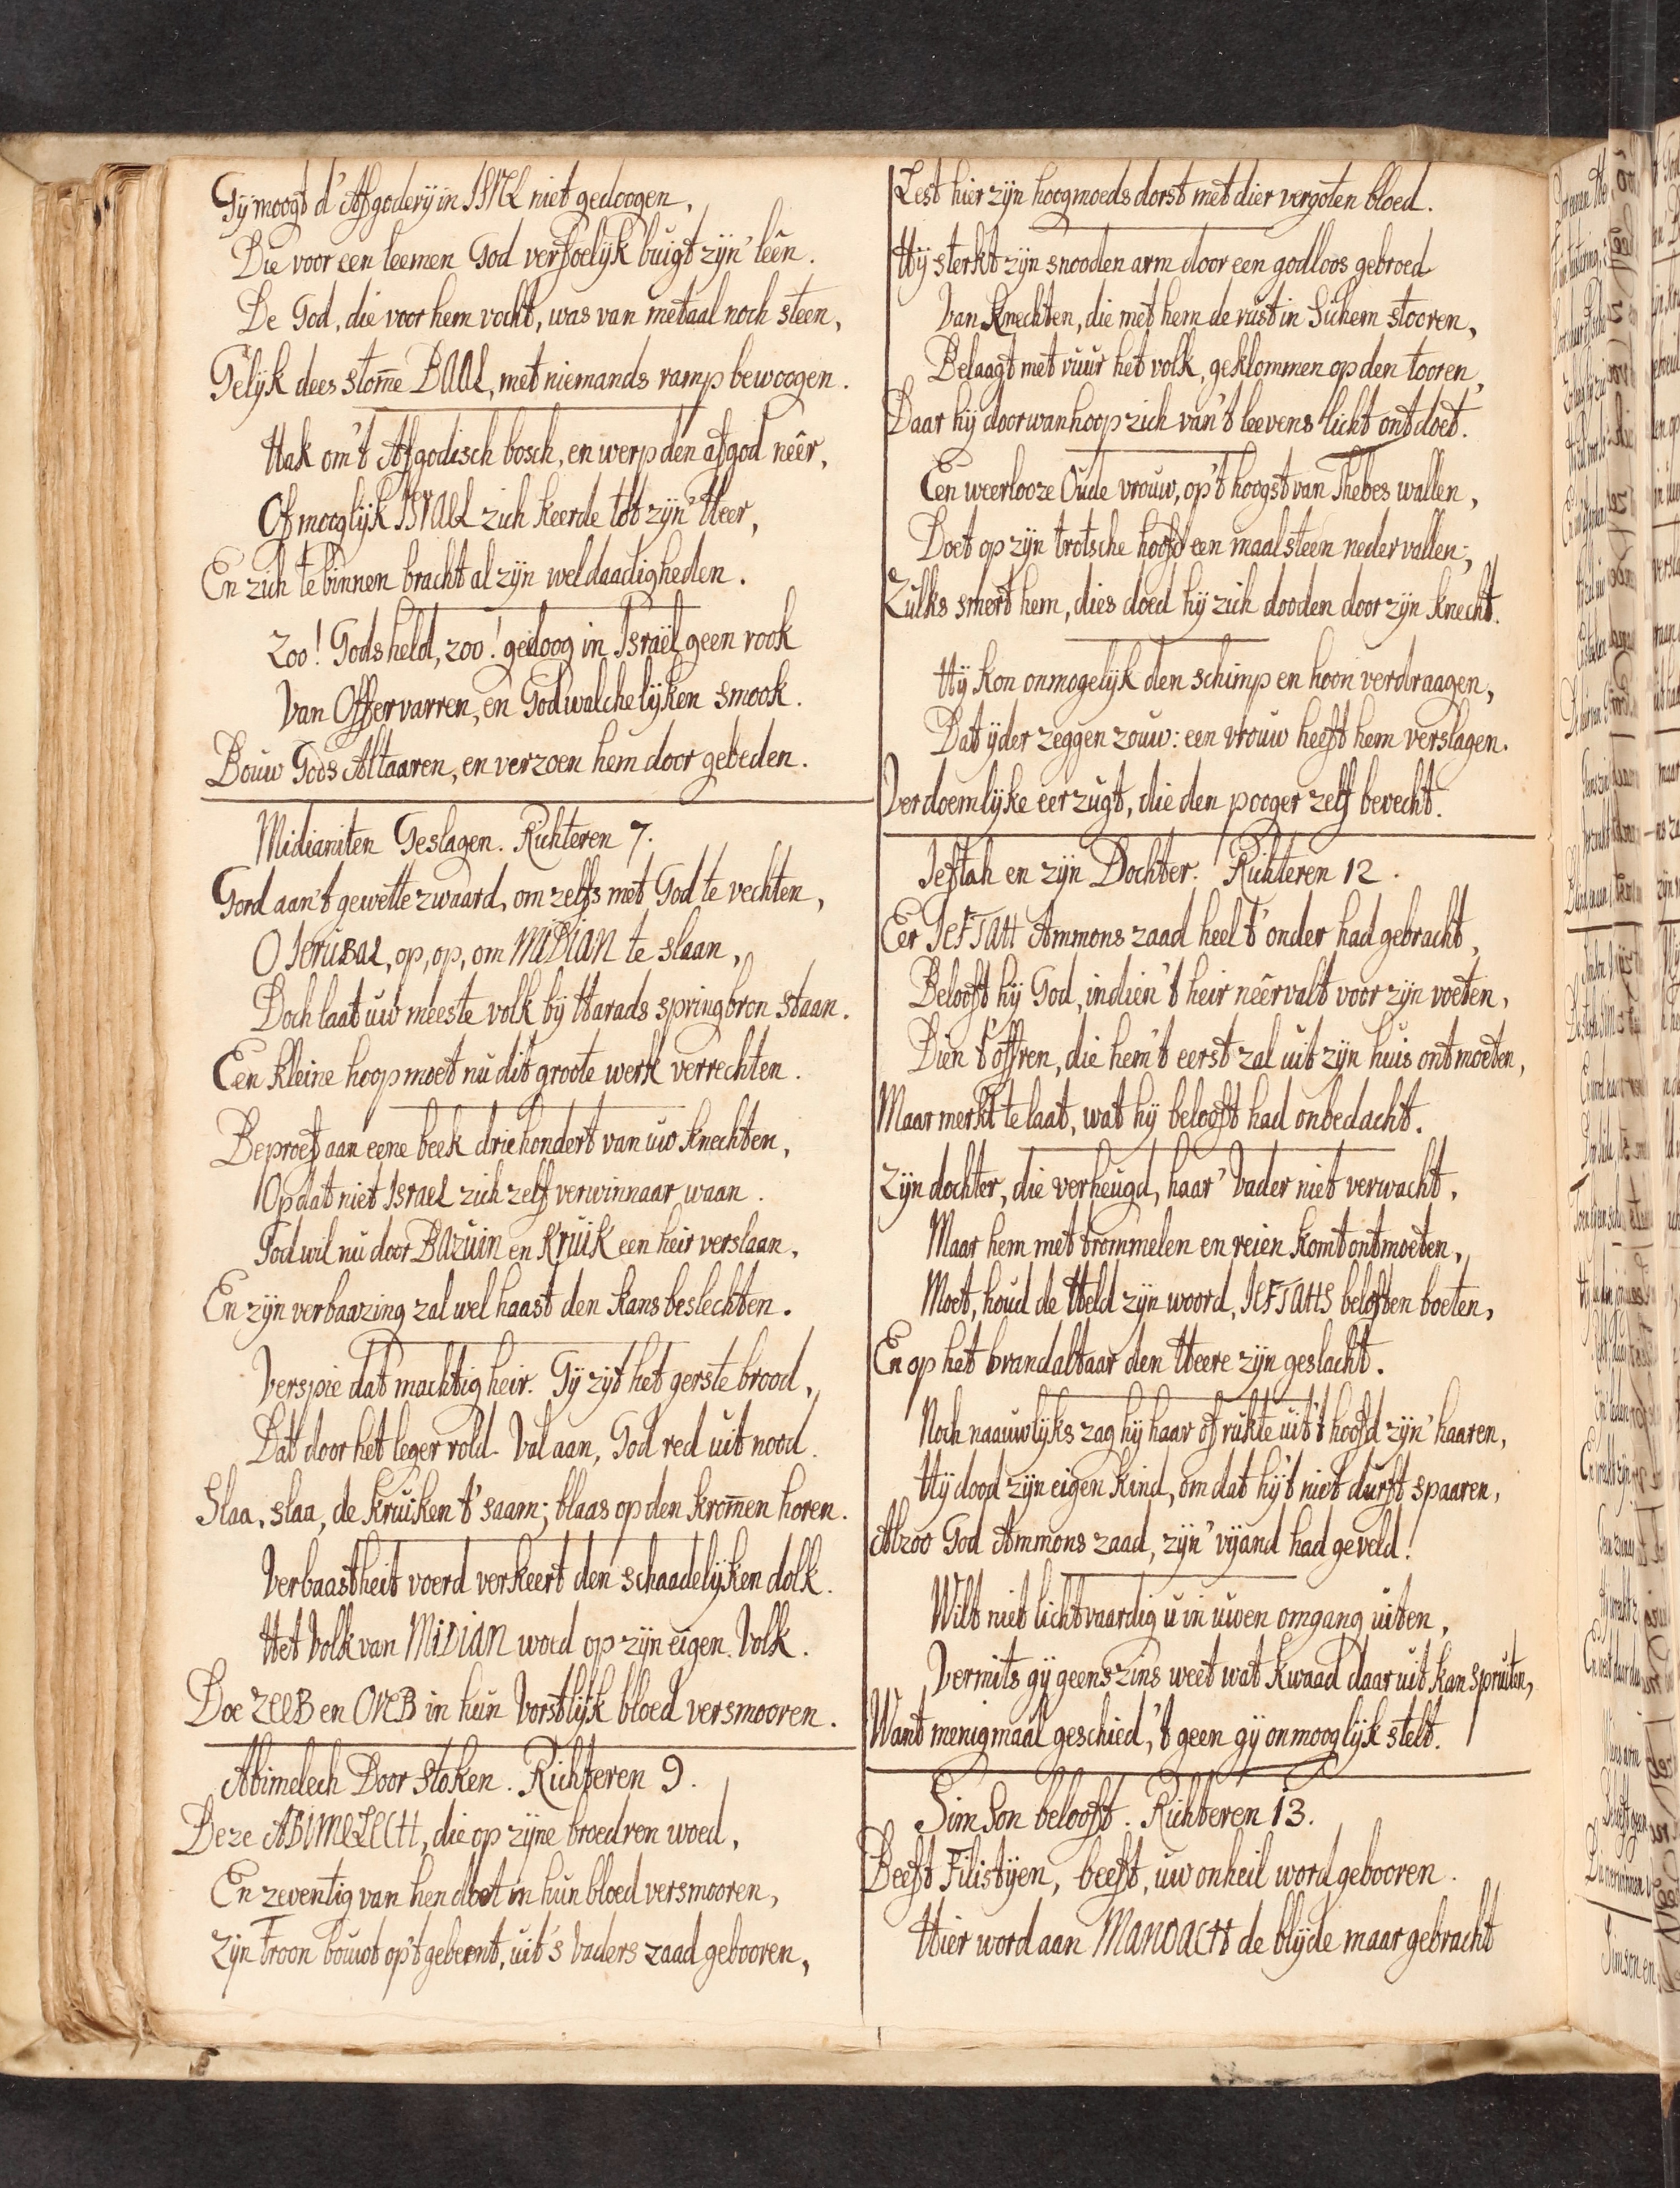 Gij moogt d' Afgoderij in ISRL niet gedoogen,
Die voor een leemen God verfoelijk buigt zijn' leên.
De God, die voor hem vocht, was van metaal noch steen,
Gelijk dees stom̅e BAAL, met niemands ramp bewoogen.
Hak om't Afgodisch bosch, en werp den afgod neêr,
Of mooglijk ISRAEL zich keerde tot zijn' Heer,
En zich te binnen bracht al zijn weldaadigheden.
Zoo! Gods held, zoo! gedoog in Israël geen rook
Van Offervarren, en Godwalchelijken smook.
Bouw Gods Altaaren, en verzoen hem door gebeden.
Midianiten Geslagen. Richteren 7.
Gord aan't gewette zwaard, om zelfs met God te vechten,
O JERUBAL, op, op, om MIDIAN te slaan,
Doch laat uw meeste volk bij Harads springbron staan.
Een kleine hoop moet nu dit groote werk verrechten.
Beproef aan eene beek driehondert van uw knechten,
Opdat niet Israel zich zelf verwinnaar waan.
God wil nu door BAZUIN en KRUIK een heir verslaan,
En zijn verbaazing zal wel haast den kans beslechten.
Verspie dat machtig heir. Gij zijt het gerste brood,
Dat door het leger rold. Val aan, God red uit nood.
Slaa, slaa, de kruiken t' saam; blaas op den krom̅en horen.
Verbaastheit voerd verkeert den schaadelijken dolk.
Het Volk van MIDIAN woed op zijn eigen Volk.
Doe ZEEB en OREB in hun Vorstlijk bloed versmooren.
Abimelech Door stoken. Richteren 9.
Deze ABIMELECH, die op zijne broedren woed,
En zeventig van hen doet in hun bloed versmooren,
Zijn Troon bouwt op't gebeent, uit's Vaders zaad gebooren,
Lest hier zijn hoogmoeds dorst met dier vergoten bloed.
Hij sterkt zijn snooden arm door een godloos gebroed
Van Knechten, die met hem de rust in Sichem stooren,
Belaagt met vuur het volk, geklommen op den tooren,
Daar hij door wanhoop zich van't leevens licht ontdoet.
Een weerlooze Oude vrouw, op't hoogst van Thebes wallen,
Doet op zijn trotsche hoofd een maalsteen nedervallen;
Zulks smert hem, dies doed hij zich dooden door zijn knecht.
Hij kon onmogelijk den schimp en hoon verdraagen,
Dat ijder zeggen zouw: een vrouw heeft hem verslagen.
Verdoemlijke eerzugt, die den pooger zelf bevecht.
Jeftah en zijn Dochter. Richteren 12.
Eer JEFTAH Ammons zaad heel t' onder had gebracht,
Belooft hij God, indien 't heir neêrvalt voor zijn voeten,
Dien t' offren, die hem't eerst zal uit zijn huis ontmoeten,
Maar merkt te laat, wat hij belooft had onbedacht.
Zijn dochter, die verheugd, haar' Vader niet verwacht,
Maar hem met trommelen en reien komt ontmoeten,
Moet, houd de Held zijn woord, JEFTAHS beloften boeten,
En op het brandaltaar den Heere zijn geslacht.
Noch naauwlijks zag hij haar of rukte uit't hoofd zijn' haaren,
Hij dood zijn eigen kind, om dat hij't niet durft spaaren,
Alzoo God Ammons zaad, zijn' vijand had geveld!
Wilt niet lichtvaardig u in uwen omgang uiten,
Vermits gij geenszins weet wat kwaad daar uit kan spruiten,
Want menigmaal geschied, 't geen gij onmooglijk stelt.
Simson belooft. Richteren 13.
Beeft Filistijen, beeft, uw onheil word gebooren.
Hier word aan MANOACH de blijde maar gebracht